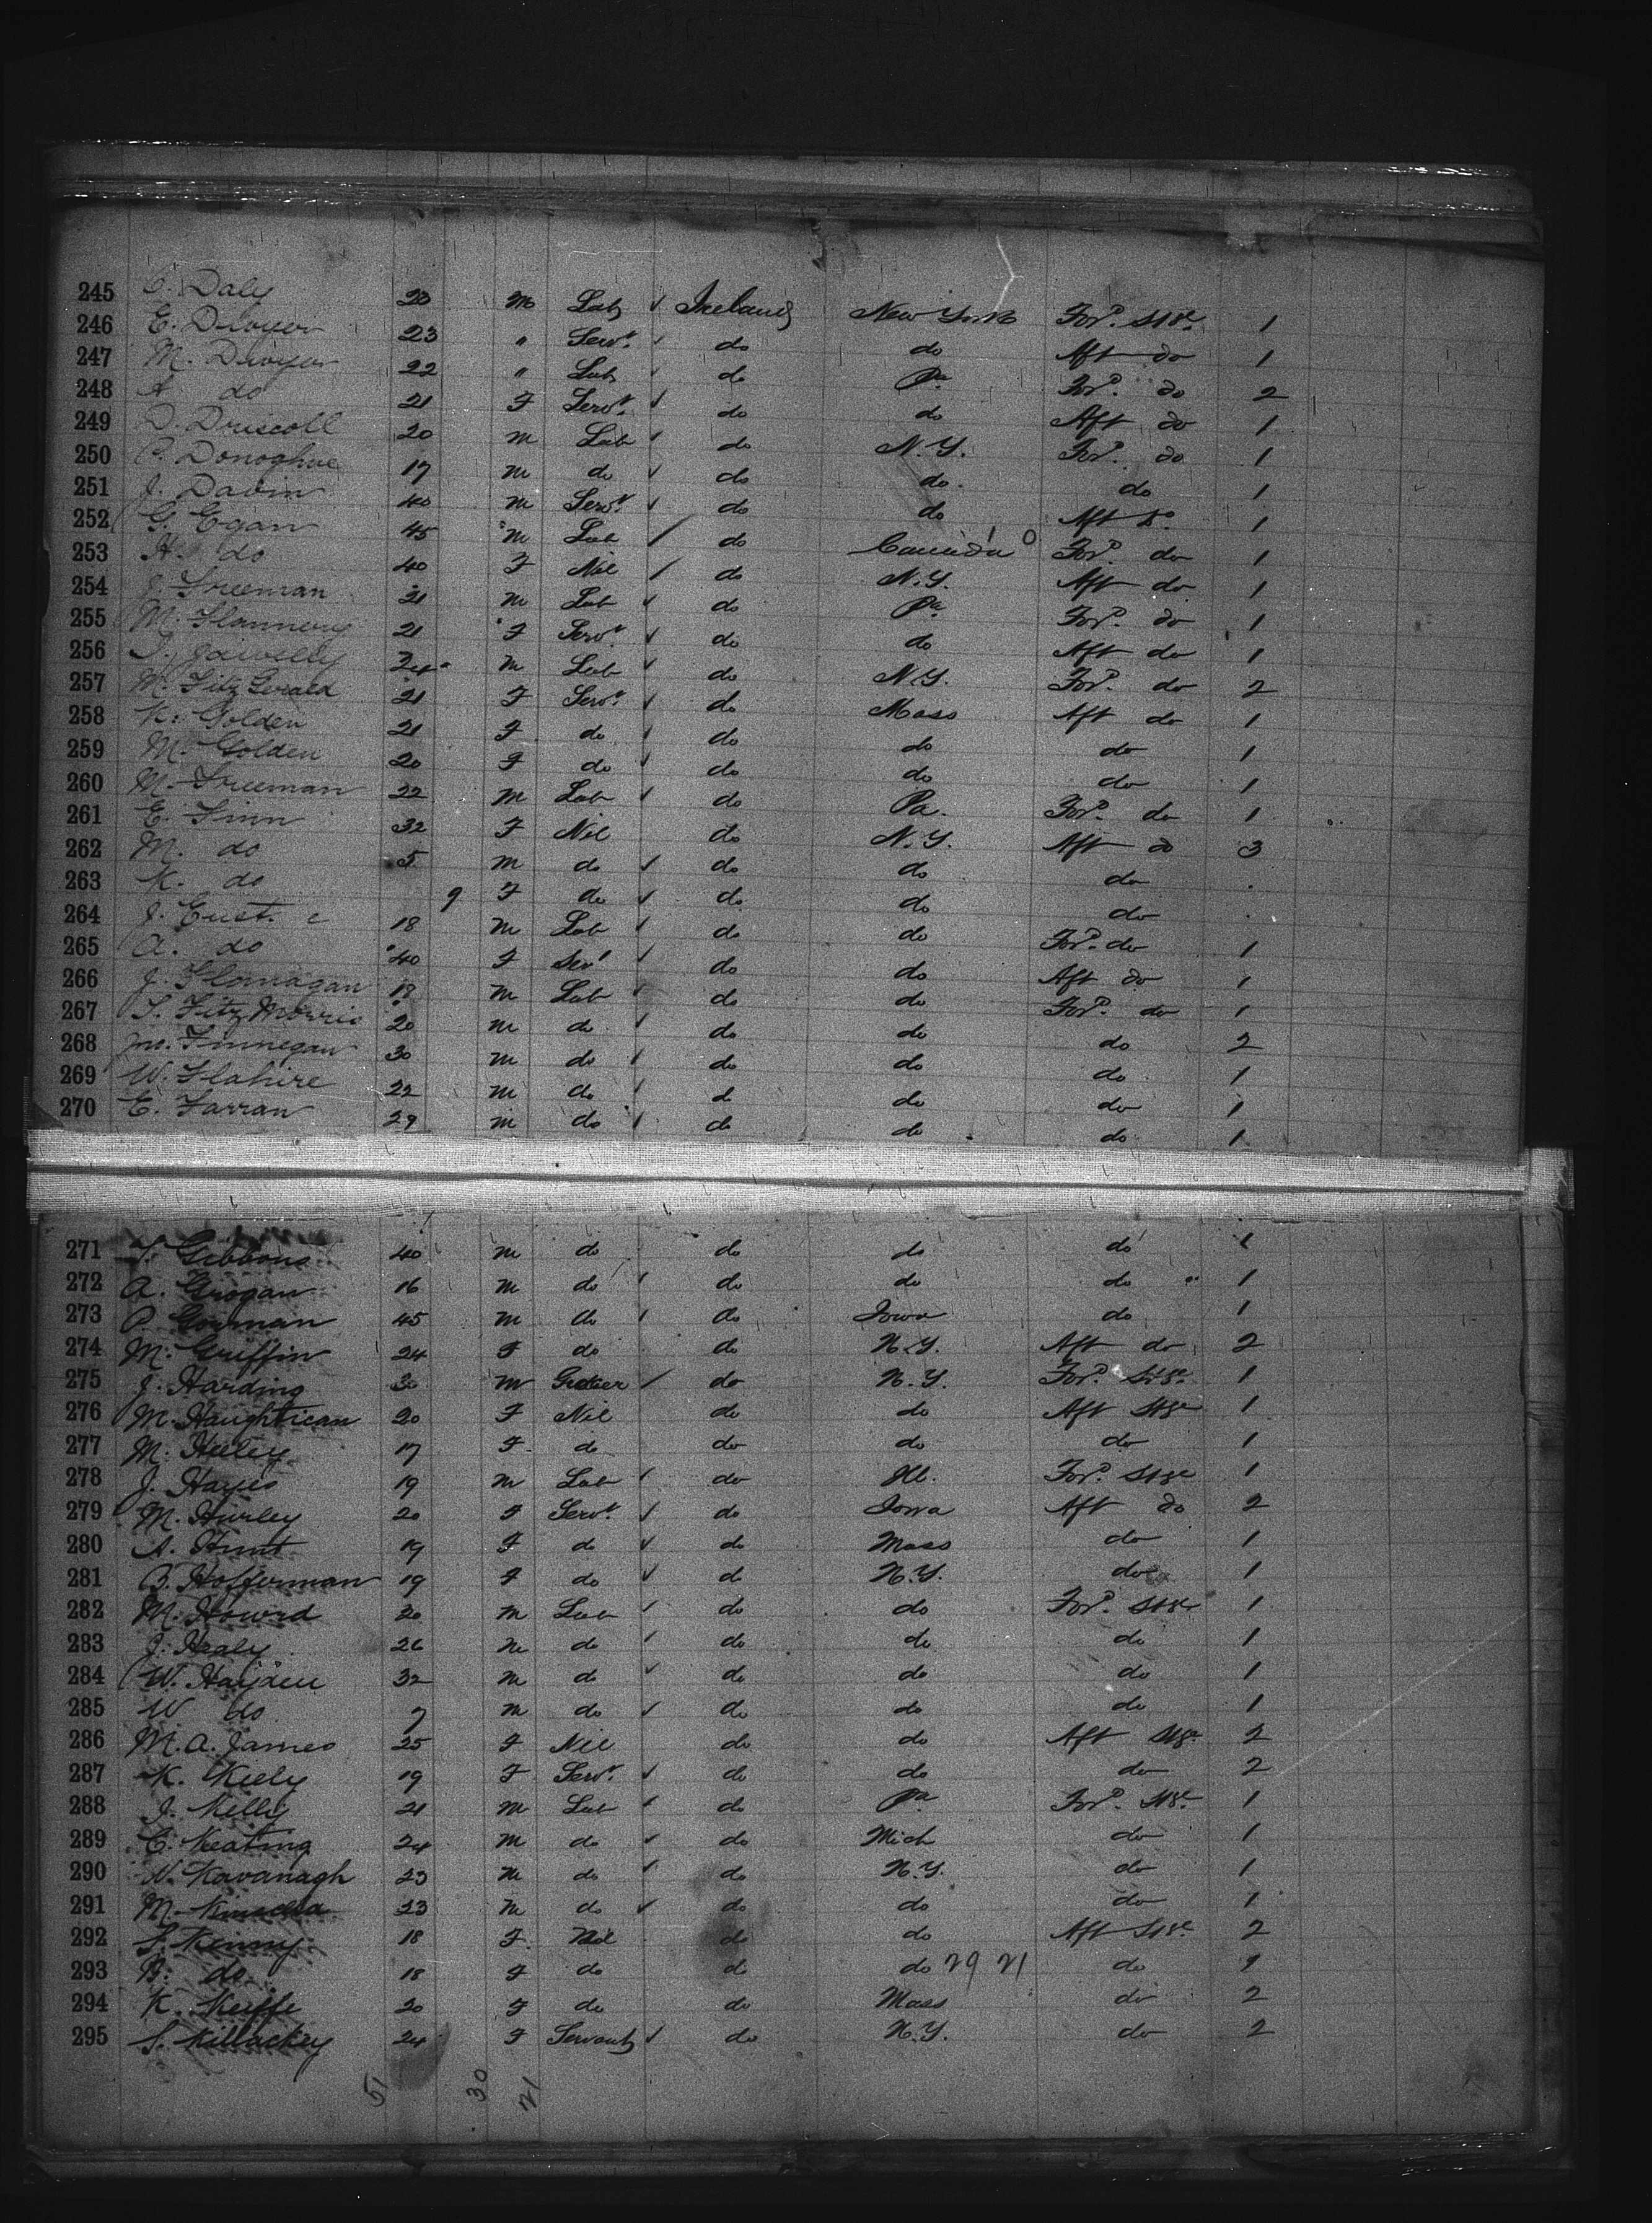 245 C. Daly 20 M Lab ✓ Ireland New York For'd. Stge. 1
246 E. Dwyer 23 " Servt. ✓ do do Aft do 1
247 M. Dwyer 22 " Lab ✓ do Pa For'd. do 2
248 A. do 21 F Servt. ✓ do do Aft do 1
249 D. Driscoll 20 M Lab ✓ do N.Y. For'd. do 1
250 P. Donoghue 17 M do ✓ do do. do 1
251 J. Davin 40 M Servt. ✓ do do Aft Do 1
252 G. Egan 45 M Lab ✓ do Canada 0 For'd. do 1
253 H. do 40 F Nil ✓ do N.Y. Aft do 1
254 J. Freeman 21 M Lab ✓ do Pa For'd. do 1
255 M. Flannery 21 F Servt. ✓ do do Aft do 1
256 24 M Lab ✓ do N.Y. For'd. do 2
257 M. Fitz Gerald 21 F Servt. ✓ do Mass Aft do 1
258 K. Golden 21 F do ✓ do do do 1
259 M. Golden 20 F do ✓ do do do 1
260 M. Freeman 22 M Lab ✓ do Pa. For'd. do 1
261 E. Finn 32 F Nil do N.Y. Aft do 3
262 M. do 5 M do ✓ do do do
263 K. do 9 F do ✓ do do do
264 J. 18 M Lab ✓ do do For'd. do 1
265 A. do 40 F Sert ✓ do do Aft do 1
266 J. Flannagan 18 M Lab ✓ do do For'd. do 1
267 T. Fitz Morris 20 M do ✓ do do do 2
268 Jno. Finnegan 30 M do ✓ do do do 1
269 W. Flahire 22 M do ✓ do do do 1
270 E. Farran 29 M do ✓ do do do 1
271 T. Gibbons 40 M do do do do 1
272 A. Grogan 16 M do ✓ do do do 1
273 P. Gorman 45 M do ✓ do Iowa do 1
274 M. Griffin 24 F do do N.Y. Aft do 2
275 J. Harding 30 M ✓ do N.Y. For'd. Stge. 1
276 M. Haughtican 20 F Nil do do Aft Stge 1
277 M. Heley 17 F. do do do do 1
278 J. Hayes 19 M Lab ✓ do Ill. For'd. Stge 1
279 M. Hurley 20 F Servt. ✓ do Iowa Aft do 2
280 A. Hunt 19 F do ✓ do Mass do 1
281 B. Hofferman 19 F do ✓ do N.Y. do 1
282 M. Howrd 20 M Lab ✓ do do For'd. Stge 1
283 J. Healy 26 M do ✓ do do do 1
284 W. Hayden 32 M do ✓ do do do 1
285 W do 7 M do ✓ do do do 1
286 M.A. James 25 F Nil do do Aft Stge 2
287 K. Kiely 19 F Servt. ✓ do do do 2
288 J. Kelly 21 M Lab ✓ do Pa For'd. Stge. 1
289 C. Keating 24 M do ✓ do Mich do 1
290 W. Kavanagh 23 M do ✓ do N.Y. do 1
291 M. Kinsella 23 M do ✓ do do do 1
292 S. Kenny 18 F. Nil do do Aft Stge. 2
293 B. do 18 F do do do 29 21 do 1
294 K. Keiffe 20 F do do Mass do 2
295 S. Killackey 24 F Servant ✓ do N.Y. do 2
51 30 21